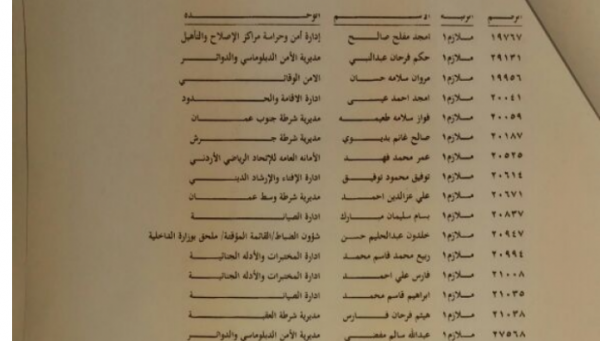 الرقم الرتبة الاسم الوحدة
١٩٧٦٧ ملازم١ امجد مفلح صالح إدارة أمن وحراسة مراكز الإصلاح والتأهيل
٢٩١٣١ ملازم١ حكم فرحان عبدالنبي مديرية الأمن الدبلوماسي والدوائر
١٩٩٥٦ ملازم١ مروان سلامه حسان الامن الوقائي
٢٠٠٤١ ملازم١ امجد احمد عيسى ادارة الاقامة والحدود
٢٠٠٥٩ ملازم١ فواز سلامه طعيمه مديرية شرطة جنوب عمان
٢٠١٨٧ ملازم١ صالح غانم بديوي مديرية شرطة جرش
٢٠٥٢٥ ملازم١ عمر محمد فهد الأمانه العامه للإتحاد الرياضي الأردني
٢٠٦١٤ ملازم١ توفيق محمود توفيق ادارة الإفتاء والإرشاد الديني
٢٠٦٧١ ملازم١ علي عزالدين احمد مديرية شرطة وسط عمان
٢٠٨٣٧ ملازم١ بسام سليمان مبارك ادارة الصيانة
٢٠٩٤٧ ملازم١ خلدون عبدالحليم حسن شؤون الضباط/القائمة المؤقتة/ ملحق بوزارة الداخلية
٢٠٩٩٤ ملازم١ ربيع محمد قاسم محمد ادارة المختبرات والأدله الجنائية
٢١٠٠٨ ملازم١ فارس علي احمد ادارة المختبرات والأدله الجنائية
٢١٠٣٥ ملازم١ ابراهيم قاسم محمد ادارة الصيانة
٢١٠٣٨ ملازم١ هيثم فرحان فارس مديرية شرطة العقبة
٢٧٥٦٨ ملازم١ عبدالله سالم مفضي مديرية الأمن الدبلوماسي والدوائر